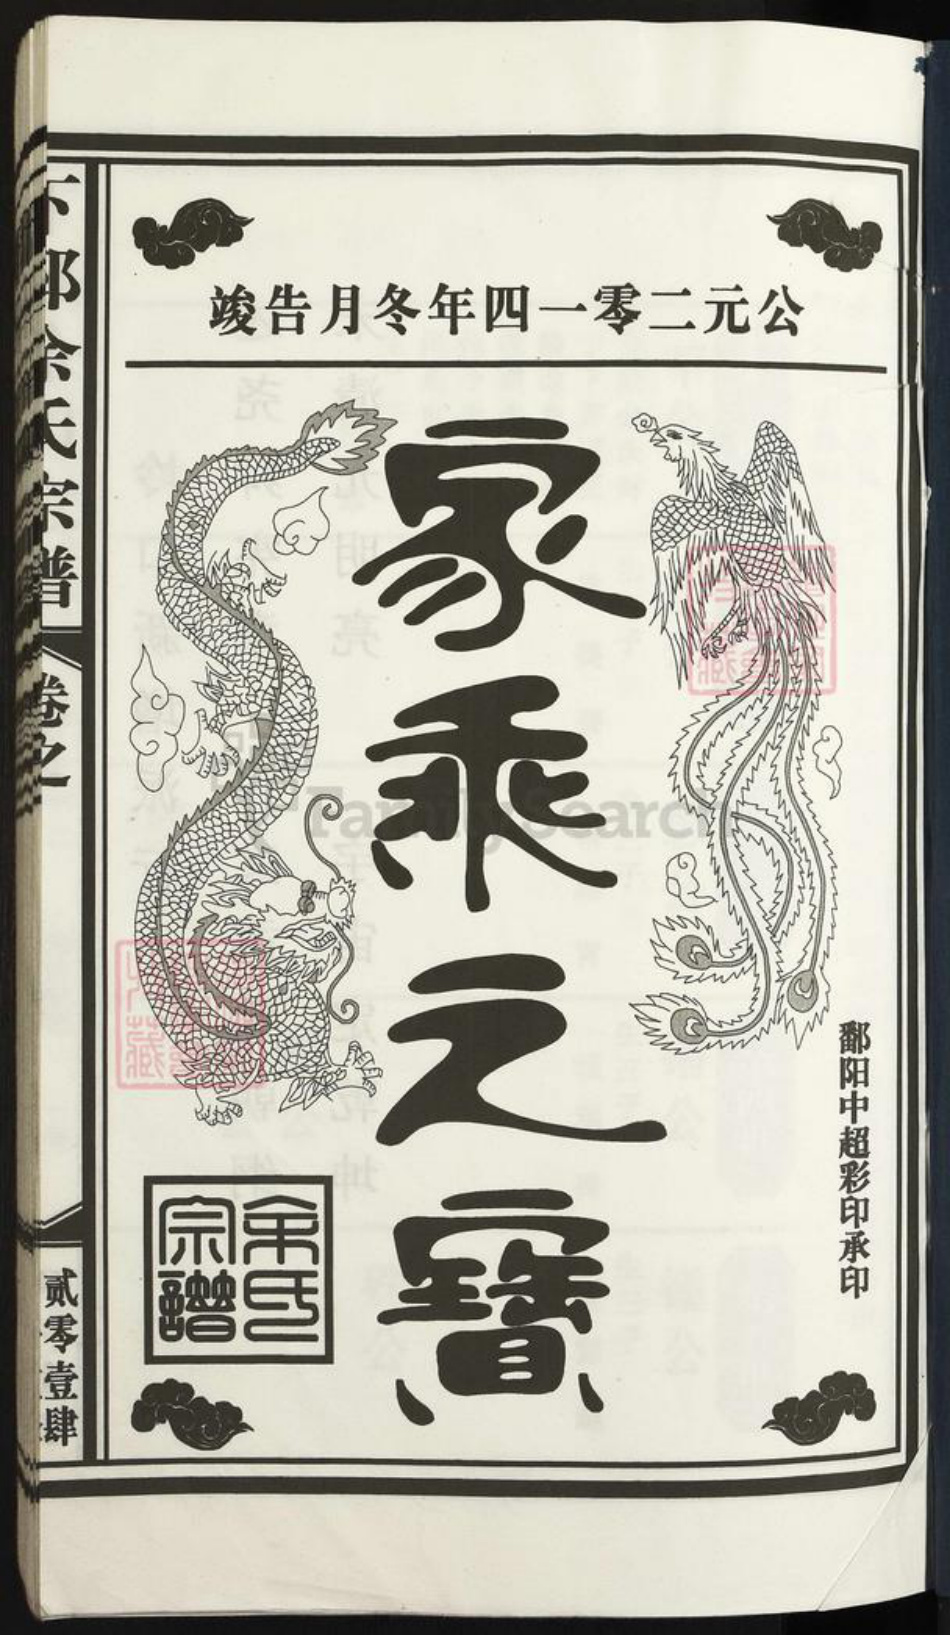 公元二零一四年冬月告竣
家乘之寶
鄱阳中超彩印承印
余氏宗譜
余氏宗谱
卷之
贰零壹肆
FamilySearch